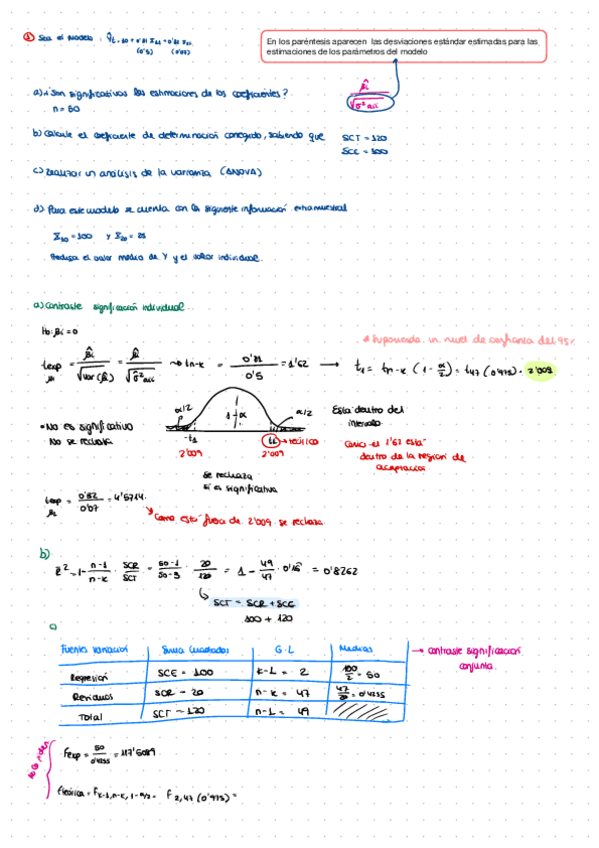 ① Sea el modelo: Ŷt = 10 + 0'81 X1t + 0'32 X2t
(0'5) (0'07)
En los paréntesis aparecen las desviaciones estándar estimadas para las
estimaciones de los parámetros del modelo
β̂i
√σ̂² aii
a) ¿Son significativas las estimaciones de los coeficientes?
n = 50
b) Calcule el coeficiente de determinación corregido, sabiendo que SCT = 120
SCE = 100
c) Realizar un análisis de la varianza (ANOVA)
d) Para este modelo se cuenta con la siguiente información extramuestral
Y X20 = 25
Prediga el valor medio de Y y el valor individual.
a) Contraste significación individual.
H0: βi = 0
* Suponiendo un nivel de confianza del 95%
texp = β̂i / √var(β̂i) = β̂i / √σ̂² aii → tn-k = 0'81 / 0'5 = 1'62 → t1 = tn-k (1 - α/2) = t47 (0'975) = 2'009
α/2 1-α α/2
Está dentro del
intervalo
• No es significativo
No se rechaza
-t1 t1 → teórico
2'009 2'009
Como el 1'62 está
dentro de la región de
aceptación
se rechaza
si es significativa
texp = 0'32 / 0'07 = 4'5714.
Como está fuera de 2'009 se rechaza
b)
R̄² = 1 - n-1 / n-k · SCR / SCT = 50-1 / 50-3 · 20 / 120 = 1 - 49 / 47 · 0'16 = 0'8262
SCT = SCR + SCE
100 + 120
c)
Fuentes variación Suma Cuadrados G.L Medias → contraste significación
conjunta.
Regresión SCE = 100 k-1 = 2 100 / 2 = 50
Residuos SCR = 20 n-k = 47 47 / 20 = 0'4255
Total SCT = 120 n-1 = 49
no lo piden
Fexp = 50 / 0'4255 = 117'5089
Fteórica = Fk-1, n-k, 1-α/2 = F2,47 (0'975) =